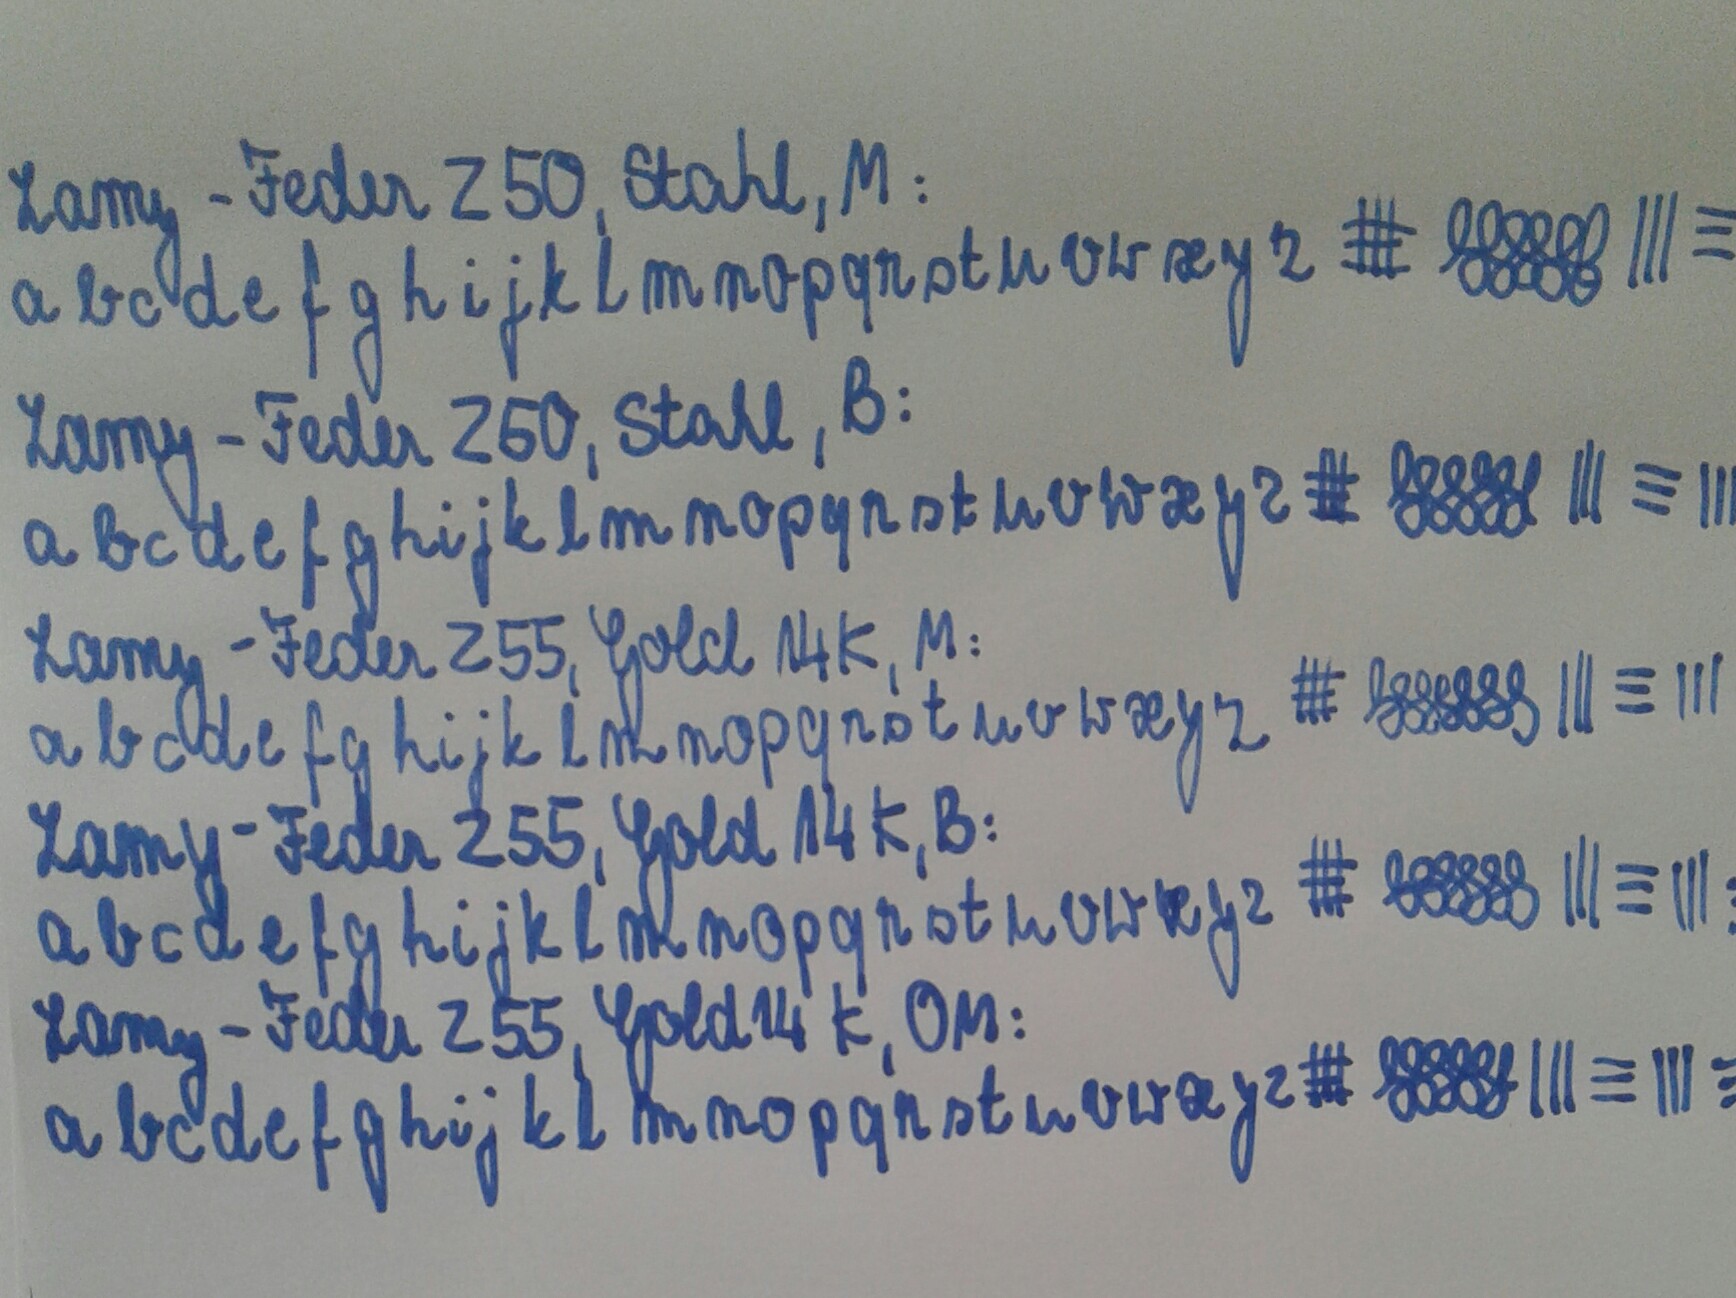 Lamy-Feder Z50, Stahl, M:
a b c d e f g h i j k l m n o p q r s t u v w x y z # ||| ≡
Lamy-Feder Z50, Stahl, B:
a b c d e f g h i j k l m n o p q r s t u v w x y z # ||| ≡ |||
Lamy-Feder Z55, Gold 14K, M:
a b c d e f g h i j k l m n o p q r s t u v w x y z # ||| ≡ |||
Lamy-Feder Z55, Gold 14K, B:
a b c d e f g h i j k l m n o p q r s t u v w x y z # ||| ≡ |||
Lamy-Feder Z55, Gold 14K, OM:
a b c d e f g h i j k l m n o p q r s t u v w x y z # ||| ≡ ||| ≡